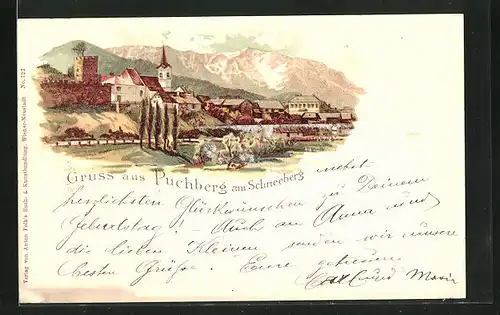 Gruss aus Puchberg am Schneeberg
nebst
herzlichsten Glückwünschen zu Deinem
Geburtstag! – Auch an Anna und
die lieben Kleinen senden wir unsere
besten Grüße. Eure getreuen
und Marie
Verlag von Anton Folk's Buch- & Kunsthandlung, Wiener-Neustadt No. 722